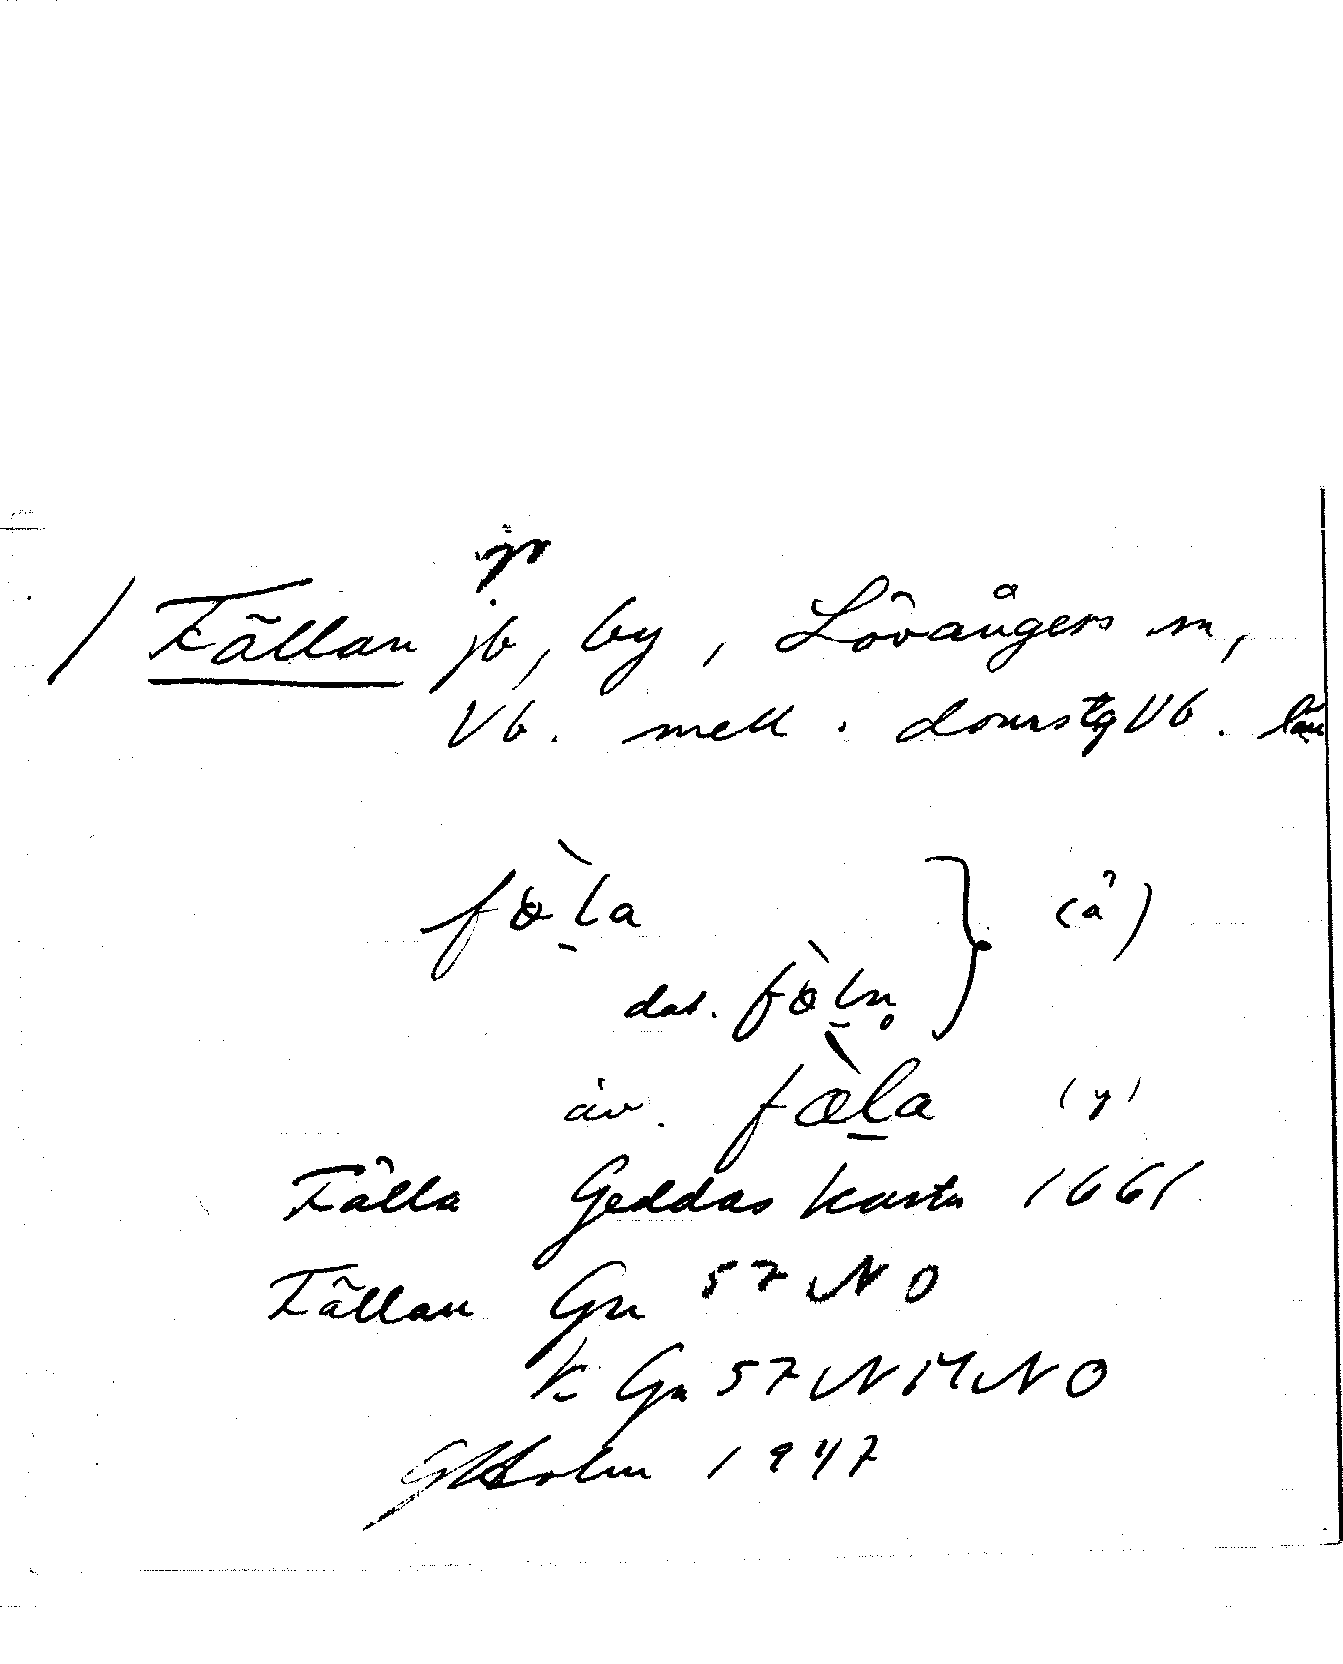 gr
/ Fällan jb, by, Lövångers sn,
Vb. mell. domstg Vb. län
fòla
dat. fòln̥
(ä)
äv. fæ̀la (y)
Fälla Geddas karta 1661
Fällan Gn 57 NO
K Gn 57 N M NO
GHolm 1947